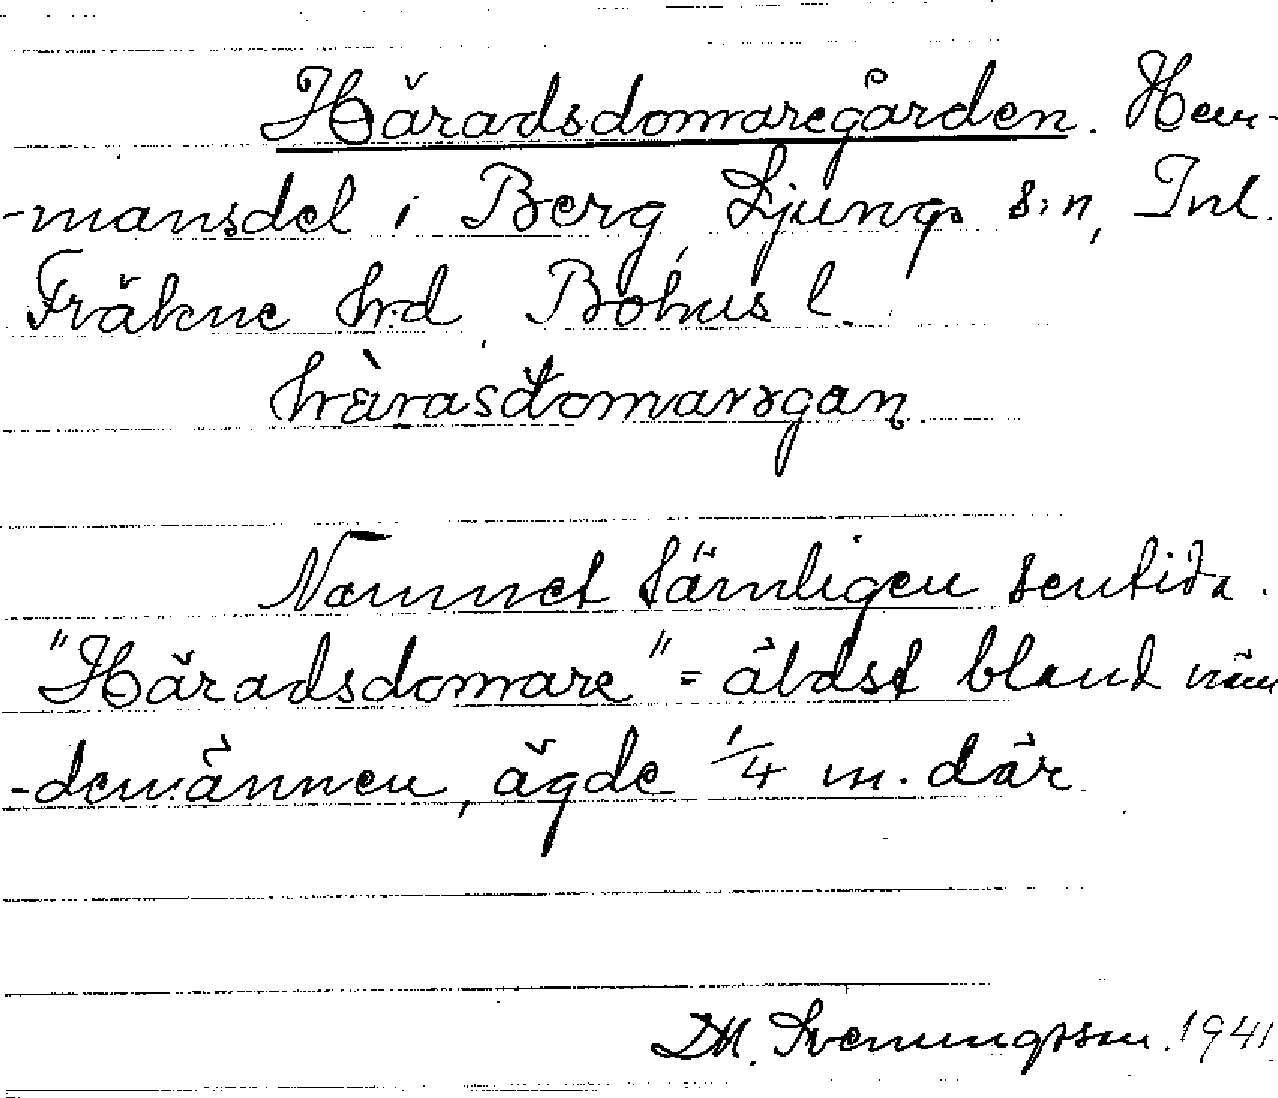 Häradsdomaregården. Hem-
-mansdel i Berg, Ljungs s:n, Inl.
Fräkne hrd, Bohus l.
Namnet tämligen sentida.
"Häradsdomare" = äldst bland näm
-demännen, ägde 1/4 m. där
DM. Svenungsson. 1941